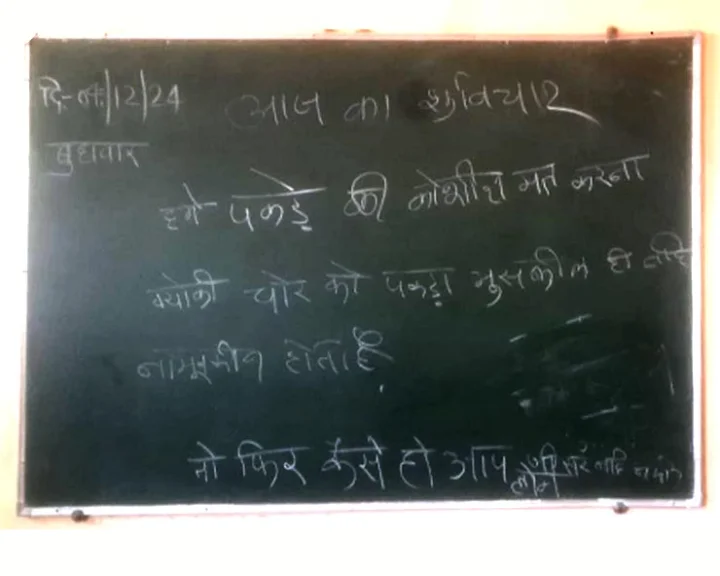 दि-04/12/24 आज का शुविचार
बुधवार
हमे पकड़े की कोशीश मत करना
क्योकी चोर को पकड़ा मुसकील ही नहि
नामूमकीन होता है
तो फिर कैसे हो आप लोग